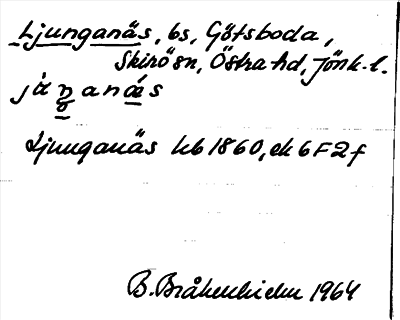 Ljunganäs, bs, Götsboda,
Skirö sn, Östra hd, Jönk. l.
Ljunganäs hb 1860, ek 6F2f
B. Bråkenhielm 1964